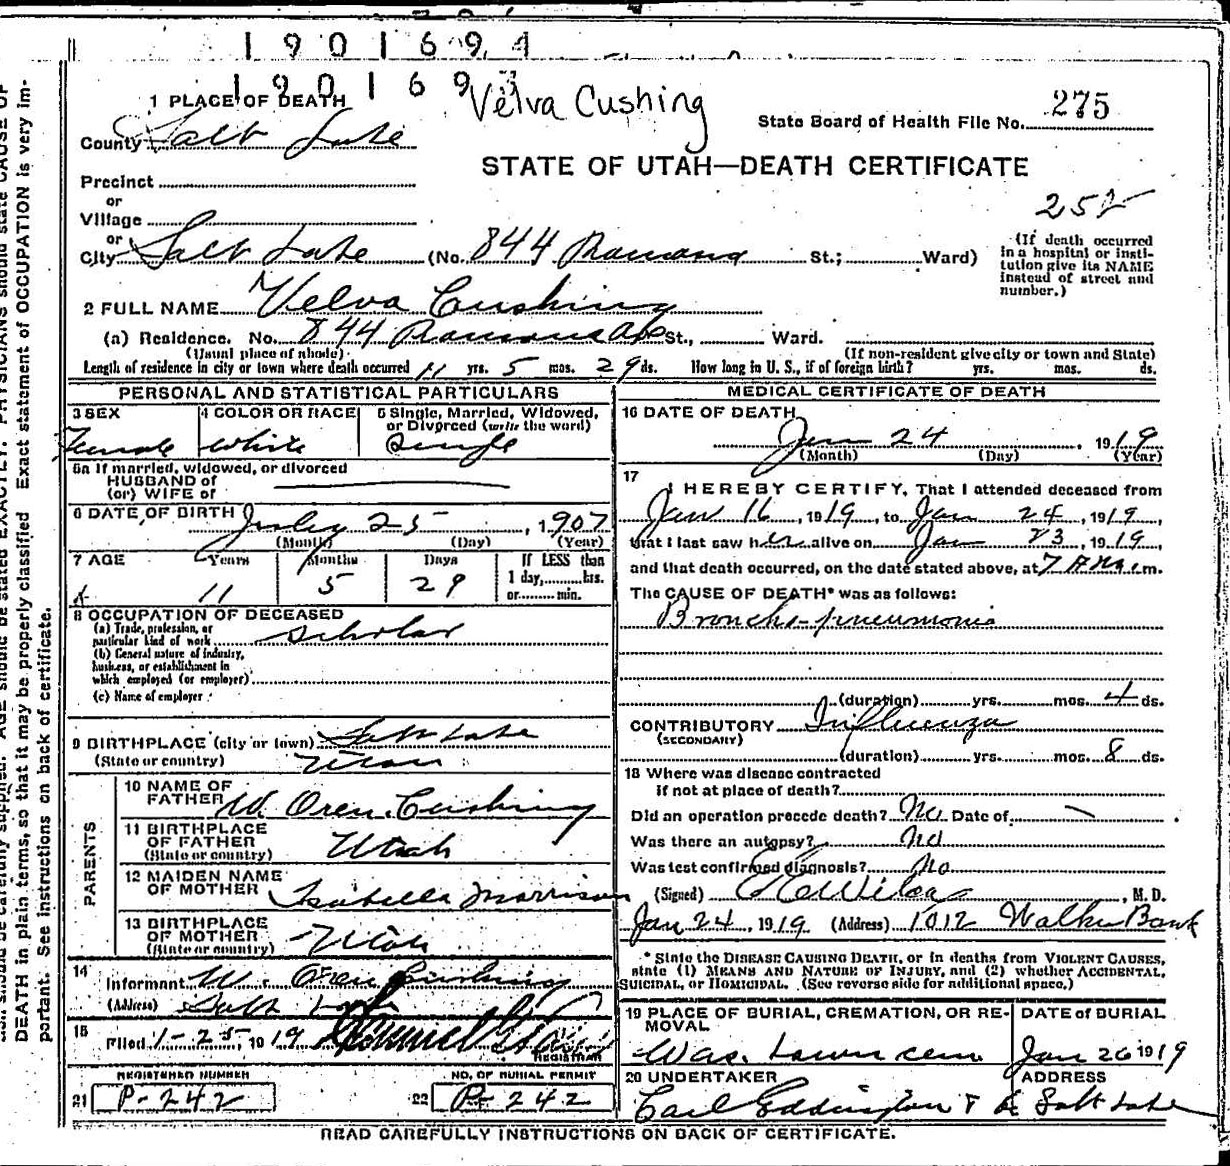 1901694
190169
Velva Cushing
1 PLACE OF DEATH
County Salt Lake
State Board of Health File No. 275
STATE OF UTAH—DEATH CERTIFICATE
Precinct
or
Village
or
City Salt Lake (No. 844 Ramona St.; Ward)
252
(If death occurred in a hospital or insti-
tution give its NAME instead of street and number.)
2 FULL NAME Velva Cushing
(a) Residence. No. 844 Ramona Ave St., Ward.
(Usual place of abode) (If non-resident give city or town and State)
Length of residence in city or town where death occurred 11 yrs. 5 mos. 29 ds. How long in U. S., if of foreign birth? yrs. mos. ds.
PERSONAL AND STATISTICAL PARTICULARS
3 SEX 4 COLOR OR RACE 5 Single, Married, Widowed, or Divorced (write the word)
Female white Single
5a If married, widowed, or divorced
HUSBAND of
(or) WIFE of
6 DATE OF BIRTH July 25, 1907
(Month) (Day) (Year)
7 AGE Years Months Days If LESS than
11 5 29 1 day, hrs.
or min.
8 OCCUPATION OF DECEASED
(a) Trade, profession, or
particular kind of work scholar
(b) General nature of industry,
business, or establishment in
which employed (or employer)
(c) Name of employer
9 BIRTHPLACE (city or town) Salt Lake
(State or country) Utah
PARENTS
10 NAME OF
FATHER W. Oren Cushing
11 BIRTHPLACE
OF FATHER
(State or country) Utah
12 MAIDEN NAME
OF MOTHER Isabella Morrison
13 BIRTHPLACE
OF MOTHER
(State or country) Utah
14
Informant W. Oren Cushing
(Address) Salt Lake
15
Filed 1-25, 1919
REGISTRAR
REGISTERED NUMBER NO. OF BURIAL PERMIT
21 P-242 22 P-242
MEDICAL CERTIFICATE OF DEATH
16 DATE OF DEATH
Jan 24, 1919
(Month) (Day) (Year)
17
I HEREBY CERTIFY, That I attended deceased from
Jan 16, 1919, to Jan 24, 1919,
that I last saw her alive on Jan 23, 1919,
and that death occurred, on the date stated above, at 7 A.M. m.
The CAUSE OF DEATH* was as follows:
Broncho-pneumonia
(duration) yrs. mos. 4 ds.
CONTRIBUTORY Influenza
(SECONDARY)
(duration) yrs. mos. 8 ds.
18 Where was disease contracted
if not at place of death?
Did an operation precede death? No Date of
Was there an autopsy? No
Was test confirmed diagnosis? No
(Signed) , M. D.
Jan 24, 1919 (Address) 1012 Walker Bank
* State the DISEASE CAUSING DEATH, or in deaths from VIOLENT CAUSES,
state (1) MEANS AND NATURE OF INJURY, and (2) whether ACCIDENTAL,
SUICIDAL, or HOMICIDAL. (See reverse side for additional space.)
19 PLACE OF BURIAL, CREMATION, OR RE-
MOVAL DATE of BURIAL
Was. Lawn cem Jan 26 1919
20 UNDERTAKER ADDRESS
Carl Eddington Salt Lake
READ CAREFULLY INSTRUCTIONS ON BACK OF CERTIFICATE.
DEATH in plain terms, so that it may be properly classified Exact statement of OCCUPATION is very im-
portant. See instructions on back of certificate.